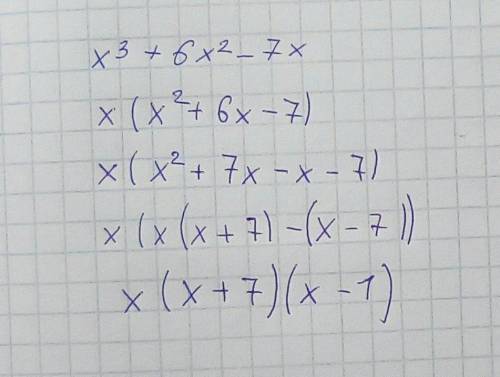 x³ + 6x² - 7x
x (x² + 6x - 7)
x (x² + 7x - x - 7)
x (x (x + 7) - (x - 7))
x (x + 7)(x - 1)